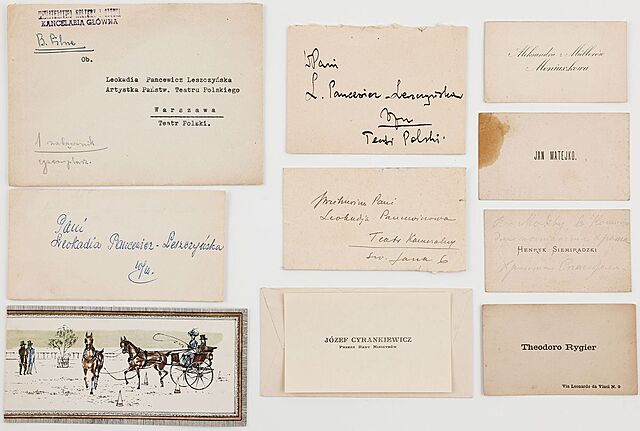 MINISTERSTWO KULTURY I SZTUKI
KANCELARIA GŁÓWNA
B. Pilne
Ob.
Leokadia Pancewicz Leszczyńska
Artystka Państw. Teatru Polskiego
Warszawa
Teatr Polski.
1
egzemplarz.
WPani
L. Pancewicz-Leszczyńska
Teatr Polski.
Aleksandra z Müllerów
Moniuszkowa
JAN MATEJKO.
HENRYK SIEMIRADZKI
Theodoro Rygier
Via Leonardo da Vinci N. 9
Pani
Leokadia Pancewicz-Leszczyńska
w/m.
Pani
Leokadja Pancewiczowa
Teatr Kameralny
św. Jana 6
JÓZEF CYRANKIEWICZ
PREZES RADY MINISTRÓW